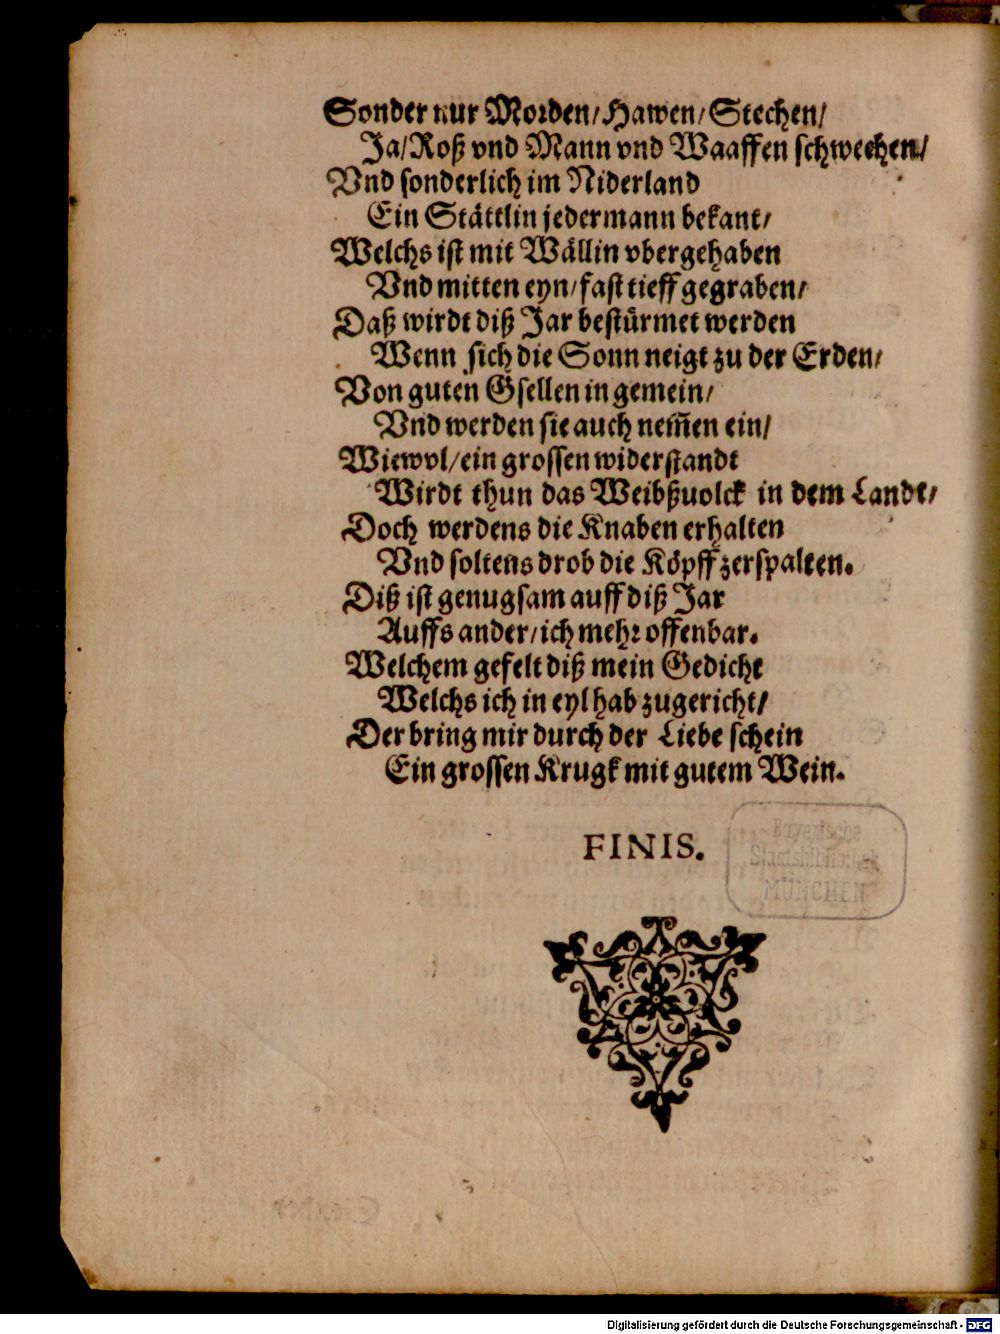 Sonder nur Morden/Hawen/Stechen/
Ja/Roß vnd Mann vnd Waaffen schwechen/
Vnd sonderlich im Niderland
Ein Stättlin jedermann bekant/
Welchs ist mit Wällin vbergehaben
Vnd mitten eyn/fast tieff gegraben/
Daß wirdt diß Jar bestürmet werden
Wenn sich die Sonn neigt zu der Erden/
Von guten Gsellen in gemein/
Vnd werden sie auch nem̄en ein/
Wiewol/ein grossen widerstandt
Wirdt thun das Weibßuolck in dem Landt/
Doch werdens die Knaben erhalten
Vnd soltens drob die Köpff zerspalten.
Diß ist genugsam auff diß Jar
Auffs ander/ich mehr offenbar.
Welchem gefelt diß mein Gedicht
Welchs ich in eyl hab zugericht/
Der bring mir durch der Liebe schein
Ein grossen Krugk mit gutem Wein.
FINIS.
Bayerische
Staatsbibliothek
MÜNCHEN
Digitalisierung gefördert durch die Deutsche Forschungsgemeinschaft - DFG